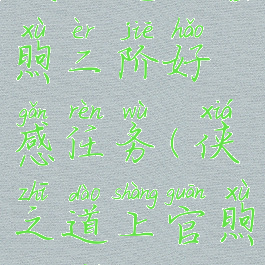 xù èr jiē hǎo
煦二阶好
gǎn rèn wù xiá
感任务(侠
zhī dào shàng guān xù
之道上官煦